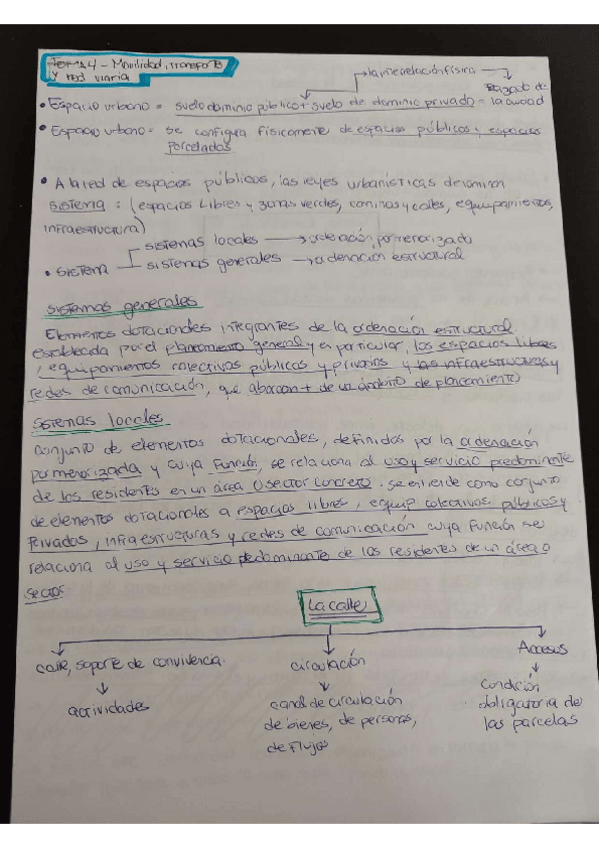 Tema 4 - Movilidad, transporte
y red viaria
→ la interrelación física → trazado de
• Espacio urbano = suelo dominio público + suelo de dominio privado = la ciudad
• Espacio urbano = se configura físicamente de espacios públicos y espacios
parcelados
• A la red de espacios públicos, las leyes urbanísticas denominan
sistema : (espacios libres y zonas verdes, caminos y calles, equipamientos,
infraestructura)
sistemas locales → ordenación pormenorizado
• sistema
sistemas generales → ordenación estructural
Sistemas generales
Elementos dotacionales integrantes de la ordenación estructural
establecida por el planeamiento general y en particular, los espacios libres
, equipamientos colectivos públicos y privados y las infraestructuras y
redes de comunicación, que abarcan + de un ámbito de planeamiento
Sistemas locales
Conjunto de elementos dotacionales, definidos por la ordenación
pormenorizada y cuya función, se relaciona al uso y servicio predominante
de los residentes en un área o sector concreto. se entiende como conjunto
de elementos dotacionales a espacios libres, equip colectivos públicos y
privados, infraestructuras y redes de comunicación cuya función se
relaciona al uso y servicio predominante de los residentes de un área o
sector
La calle
calle, soporte de convivencia. circulación Accesos
actividades canal de circulación condición
de bienes, de personas, obligatoria de
de flujos las parcelas